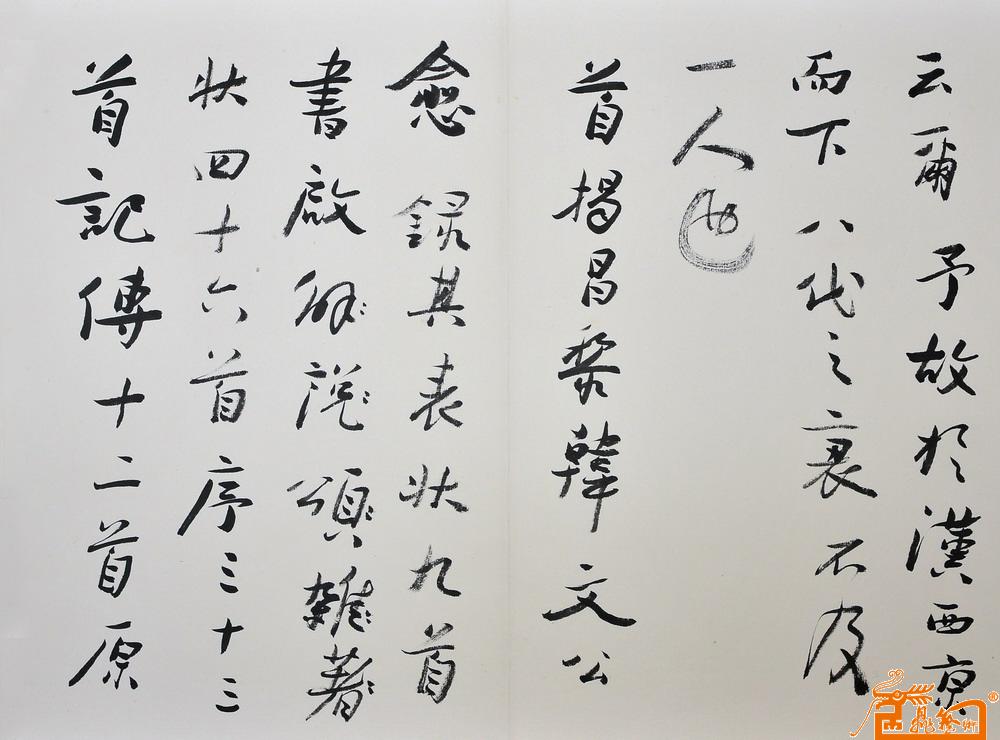 云爾予故於漢西京
而下八代之衰不及
一人也
首揭昌黎韓文公
愈錄其表狀九首
書啟解說頌雜著
狀四十六首序三十三
首記傳十二首原